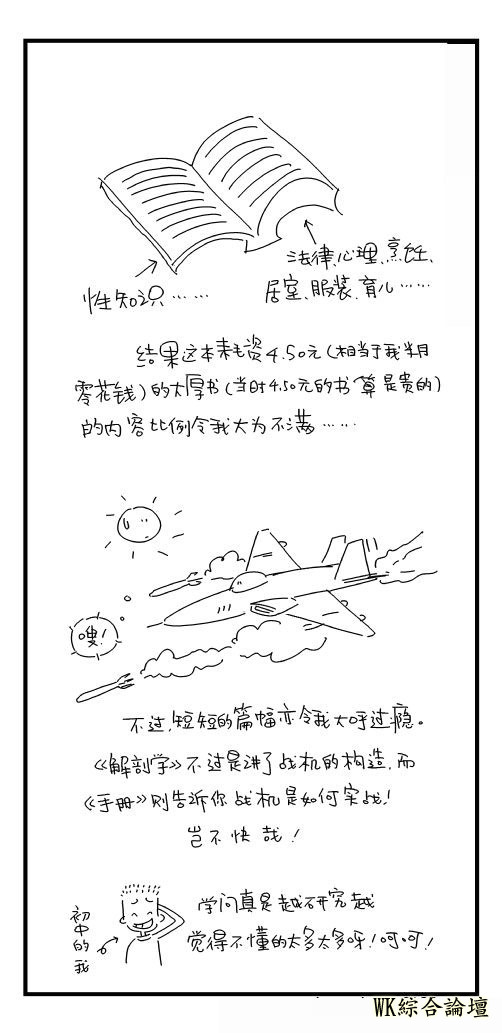 法律、心理、烹饪、
居室、服装、育儿……
性知识……
结果这本耗资4.50元(相当于我半月
零花钱)的大厚书(当时4.50元的书算是贵的)
的内容比例令我大为不满……
嗖!
不过,短短的篇幅亦令我大呼过瘾。
《解剖学》不过是讲了战机的构造,而
《手册》则告诉你战机是如何实战!
岂不快哉!
初中的我
学问真是越研究越
觉得不懂的太多太多呀!呵呵!
WK綜合論壇